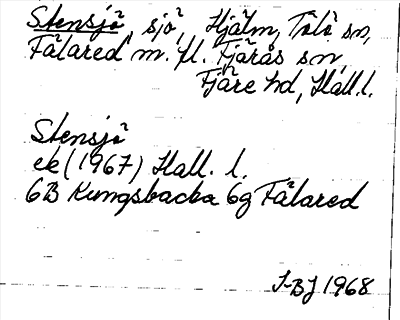 Stensjö, sjö, Hjälm, Tölö sn,
Fälared m. fl. Fjärås sn,
Fjäre hd, Hall.l.
Stensjö
ek (1967) Hall. l.
6B Kungsbacka 6g Fälared
I-BJ 1968